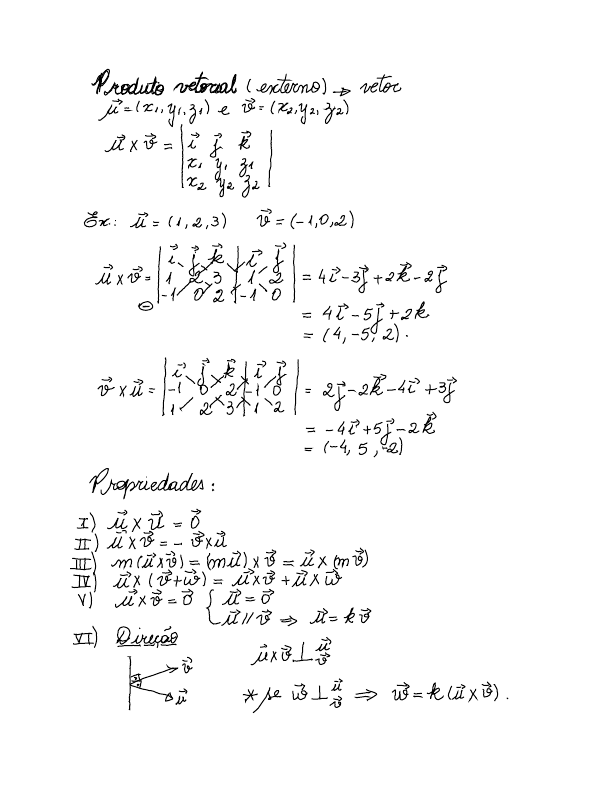 Produto vetorial (externo) → vetor
u⃗ = (x₁, y₁, z₁) e v⃗ = (x₂, y₂, z₂)
u⃗ × v⃗ = | i⃗ j⃗ k⃗ |
x₁ y₁ z₁
x₂ y₂ z₂
Ex.: u⃗ = (1, 2, 3) v⃗ = (-1, 0, 2)
i⃗ j⃗ k⃗ | i⃗ j⃗
u⃗ × v⃗ = | 1 2 3 | 1 2 | = 4i⃗ - 3j⃗ + 2k⃗ - 2j⃗
⊖ -1 0 2 | -1 0
= 4i⃗ - 5j⃗ + 2k
= (4, -5, 2).
i⃗ j⃗ k⃗ | i⃗ j⃗
v⃗ × u⃗ = | -1 0 2 | -1 0 | = 2j⃗ - 2k⃗ - 4i⃗ + 3j⃗
1 2 3 | 1 2
= -4i⃗ + 5j⃗ - 2k⃗
= (-4, 5, -2)
Propriedades:
I) u⃗ × u⃗ = 0⃗
II) u⃗ × v⃗ = - v⃗ × u⃗
III) m(u⃗ × v⃗) = (mu⃗) × v⃗ = u⃗ × (mv⃗)
IV) u⃗ × (v⃗ + w⃗) = u⃗ × v⃗ + u⃗ × w⃗
V) u⃗ × v⃗ = 0⃗ { u⃗ = 0⃗
u⃗ // v⃗ ⇒ u⃗ = k v⃗
VI) Direção
v⃗
u⃗
u⃗ × v⃗ ⊥ u⃗ v⃗
* se w⃗ ⊥ u⃗ v⃗ ⇒ w⃗ = k (u⃗ × v⃗).